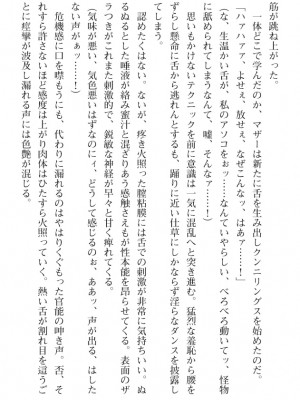 筋が跳ね上がった。
　一体どこで学んだのか、マザーは新たに舌を生み出しクンニリングスを始めたのだ。
「ハァハァァ、よせェ、放せェ、なぜこんなァ、はぁァ……！」
（な、生温かい舌がァ、私のアソコをぉッ……なんていやらしい、べろべろ動いてッ、怪物
に舐められてしまうなんて、嘘、そんなァ……！）
　思いもかけないテクニックを前に意識は一気に混乱へと突き進む。猛烈な羞恥から腰を
ずらし懸命に舌から逃れんとするも、踊りに近い仕草にしかならず淫らなダンスを披露し
てしまう。
　認めたくはない。ないが、疼き火照った膣粘膜には舌での刺激が非常に気持ちいい。ぬ
るぬるとした唾液が絡み蜜汁と混ざりあう感触さえもが性本能を昂らせてくる。表面のザ
ラつきがこれまた刺激的で、鋭敏な神経が早々と甘く痺れてくる。
（気味が悪い、気色悪いはずなのにィ、どうして感じるのぉ、ああッ、声が出る、はした
ない声がぁッ……！）
　危機感に口を噤もうにも、代わりに漏れるのはやはりくぐもった官能の呻き声。否、そ
れすら許さないほど感度は上がり肉体はひたすら火照っていく。熱い舌が割れ目を這うご
とに痙攣が波及し漏れる声には色艶が混じる。